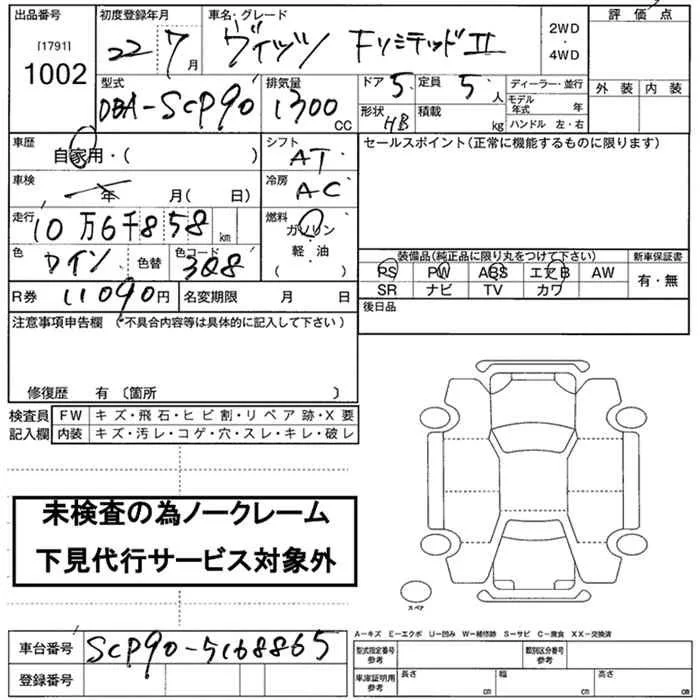 出品番号 初度登録年月 車名・グレード 評価点
[1791] 22 7月 ヴィッツ FリミテッドII 2WD・4WD
1002
外装 内装
型式 排気量 ドア 5 定員 5人 ディーラー・並行
DBA-SCP90 1300CC 形状 HB 積載 kg モデル年式 年
ハンドル 左・右
車歴 自家用・( ) シフト AT セールスポイント(正常に機能するものに限ります)
車検 年 月( 日) 冷房 AC
走行 10万6千858km 燃料 ガソリン
軽・油
( )
色 ワイン 色替 色コード 3Q8
装備品(純正品に限り丸をつけて下さい) 新車保証書
PS PW ABS エアB AW 有・無
SR ナビ TV カワ
R券 11090円 名変期限 月 日 後日品
注意事項申告欄 (*不具合内容等は具体的に記入して下さい)
修復歴 有 〔箇所 〕
検査員 FW キズ・飛石・ヒビ割・リペア跡・X要
記入欄 内装 キズ・汚レ・コゲ・穴・スレ・キレ・破レ
未検査の為ノークレーム
下見代行サービス対象外
スペア
A-キズ E-エクボ U-凹み W-補修跡 S-サビ C-腐食 XX-交換済
車台番号 SCP90-5168865 型式指定番号 参考 類別区分番号 参考
登録番号 車庫証明用 参考 長さ cm 幅 cm 高さ cm